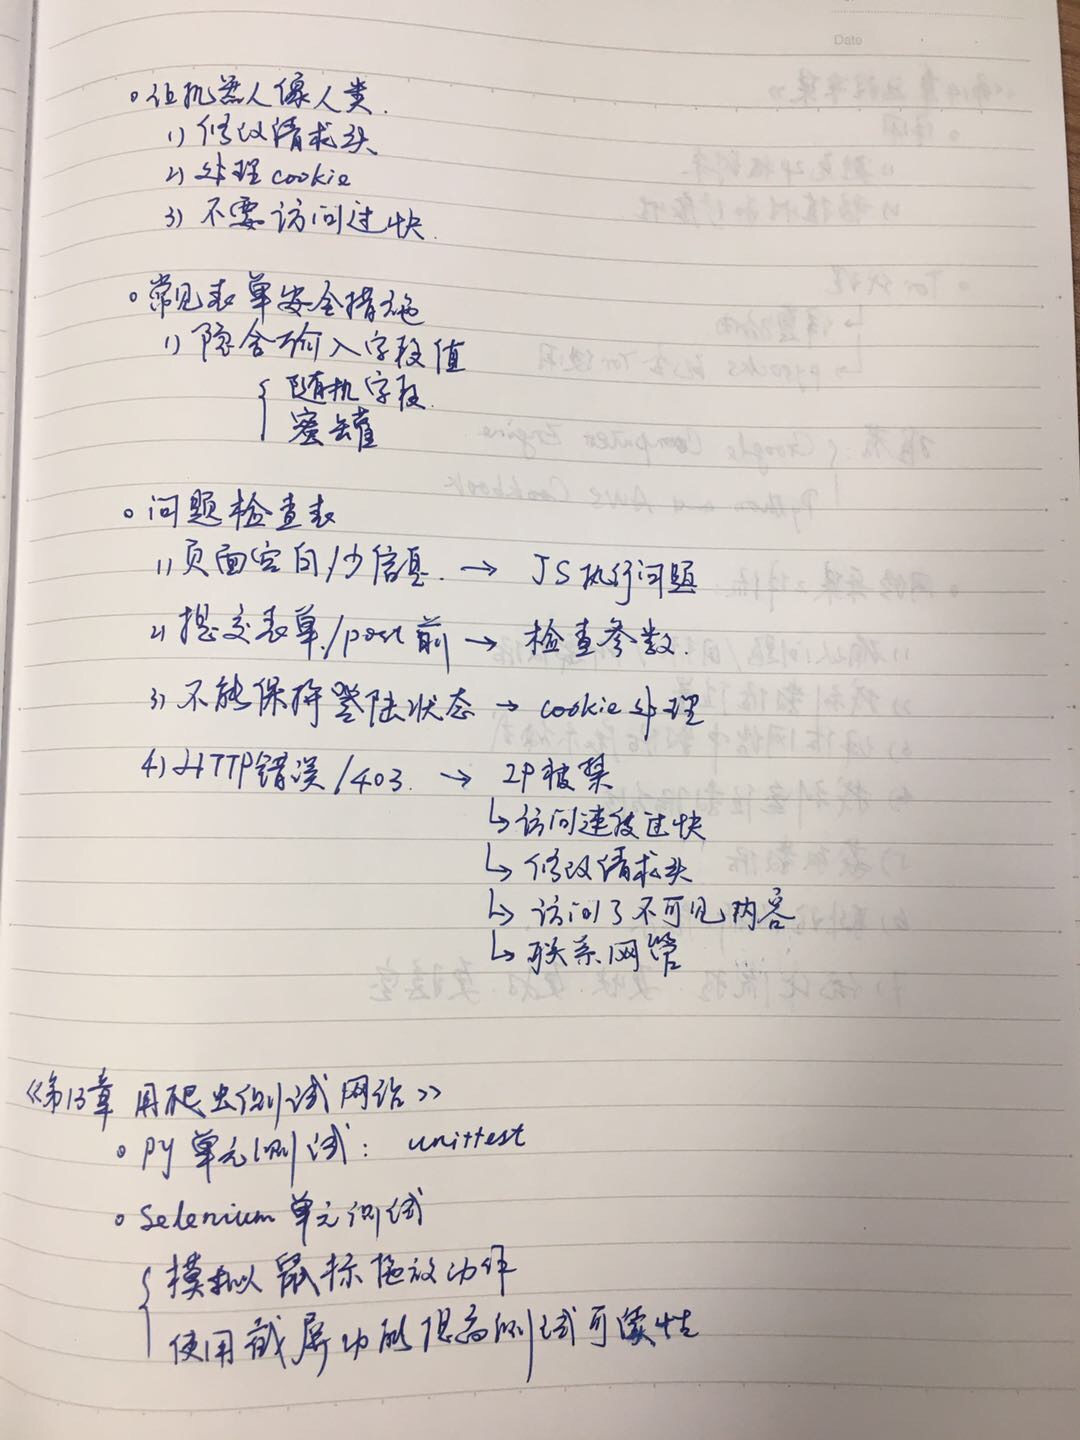 Date
。让机器人像人类.
1) 修改请求头
2) 处理cookie
3) 不要访问过快.
。常见表单安全措施
1) 隐含输入字段值
{ 随机字段.
蜜罐
。问题检查表
1) 页面空白/少信息. → JS执行问题
2) 提交表单/post前 → 检查参数.
3) 不能保持登陆状态 → cookie处理
4) HTTP错误/403. → IP被禁
↳ 访问速度过快
↳ 修改请求头
↳ 访问了不可见内容
↳ 联系网管
《第13章 用爬虫测试网络》
。py单元测试: unittest
。Selenium单元测试
{ 模拟鼠标拖放动作
使用截屏功能提高测试可读性